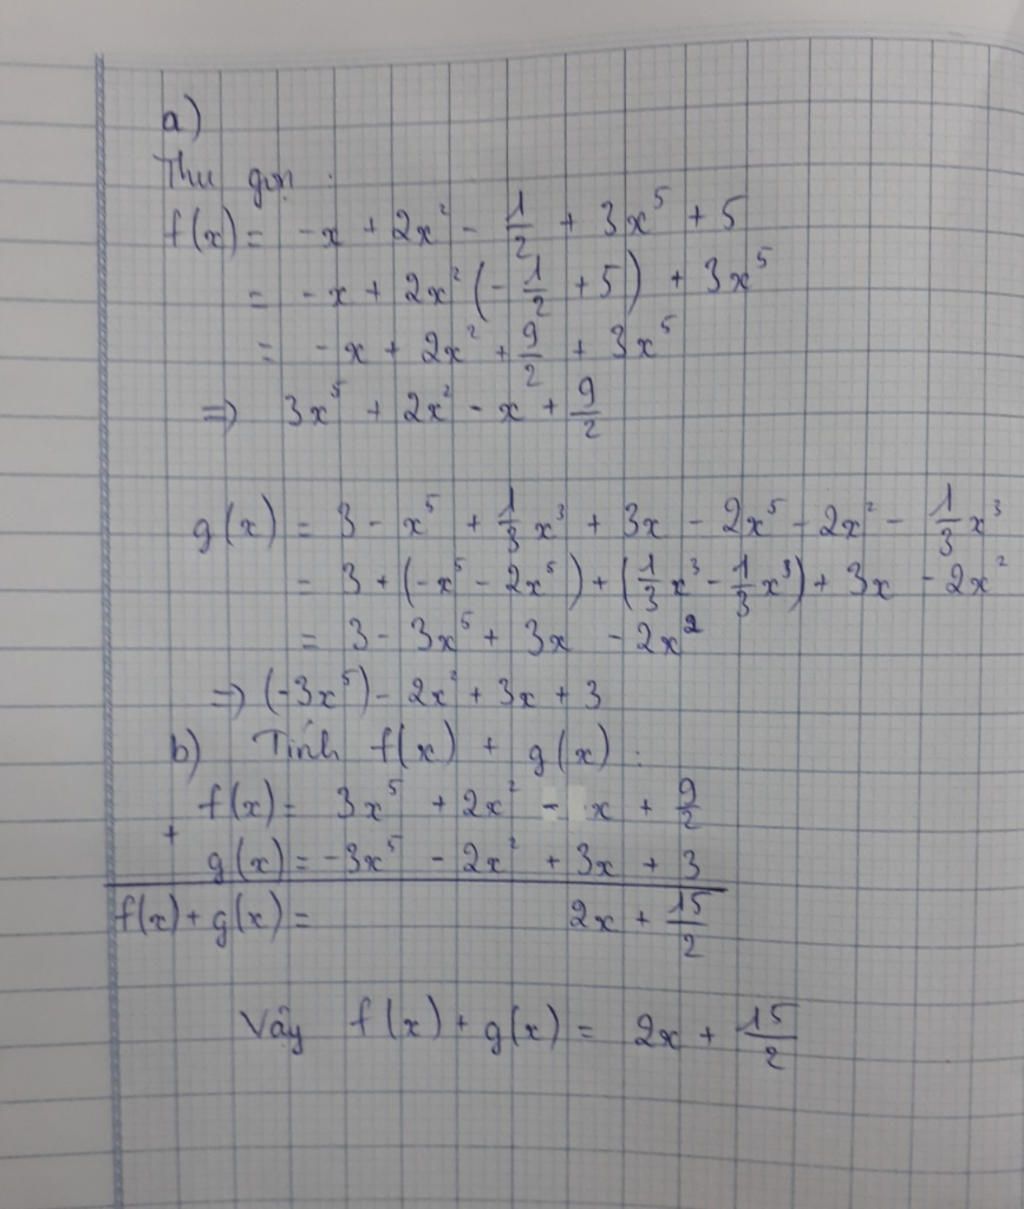 a)
Thu gọn :
f(x) = -x + 2x² - 1/2 + 3x⁵ + 5
= -x + 2x² (-1/2 + 5) + 3x⁵
= -x + 2x² + 9/2 + 3x⁵
=> 3x⁵ + 2x² - x + 9/2
g(x) = 3 - x⁵ + 1/3 x³ + 3x - 2x⁵ - 2x² - 1/3 x³
= 3 + (-x⁵ - 2x⁵) + (1/3 x³ - 1/3 x³) + 3x - 2x²
= 3 - 3x⁵ + 3x - 2x²
=> (-3x⁵) - 2x² + 3x + 3
b) Tính f(x) + g(x) :
f(x) = 3x⁵ + 2x² - x + 9/2
+
g(x) = -3x⁵ - 2x² + 3x + 3
f(x) + g(x) = 2x + 15/2
Vậy f(x) + g(x) = 2x + 15/2